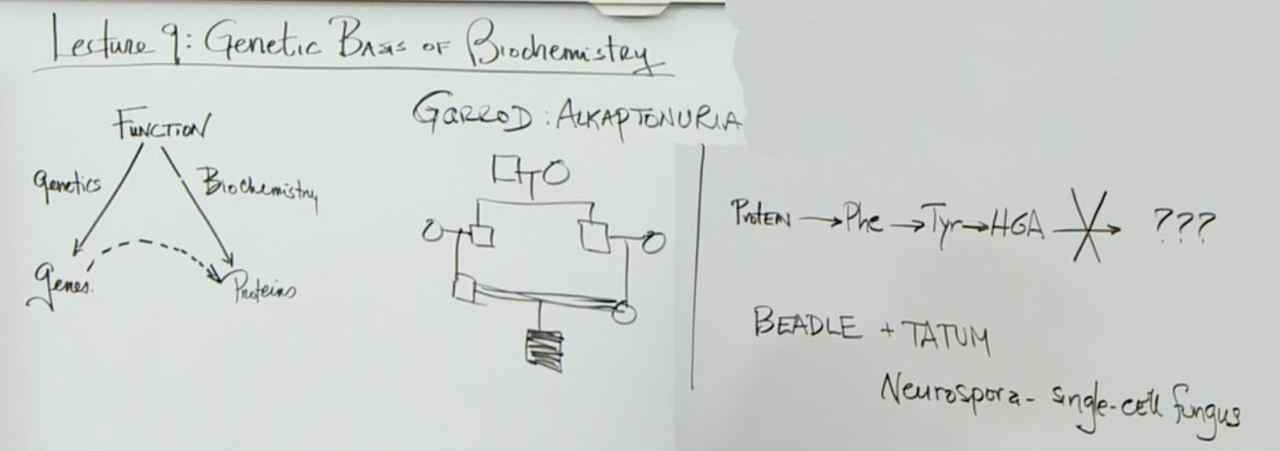 Lecture 9: Genetic Basis of Biochemistry
FUNCTION
Genetics
Biochemistry
Genes
Proteins
GARROD: ALKAPTONURIA
Protein → Phe → Tyr → HGA → ???
BEADLE + TATUM
Neurospora - single-cell fungus